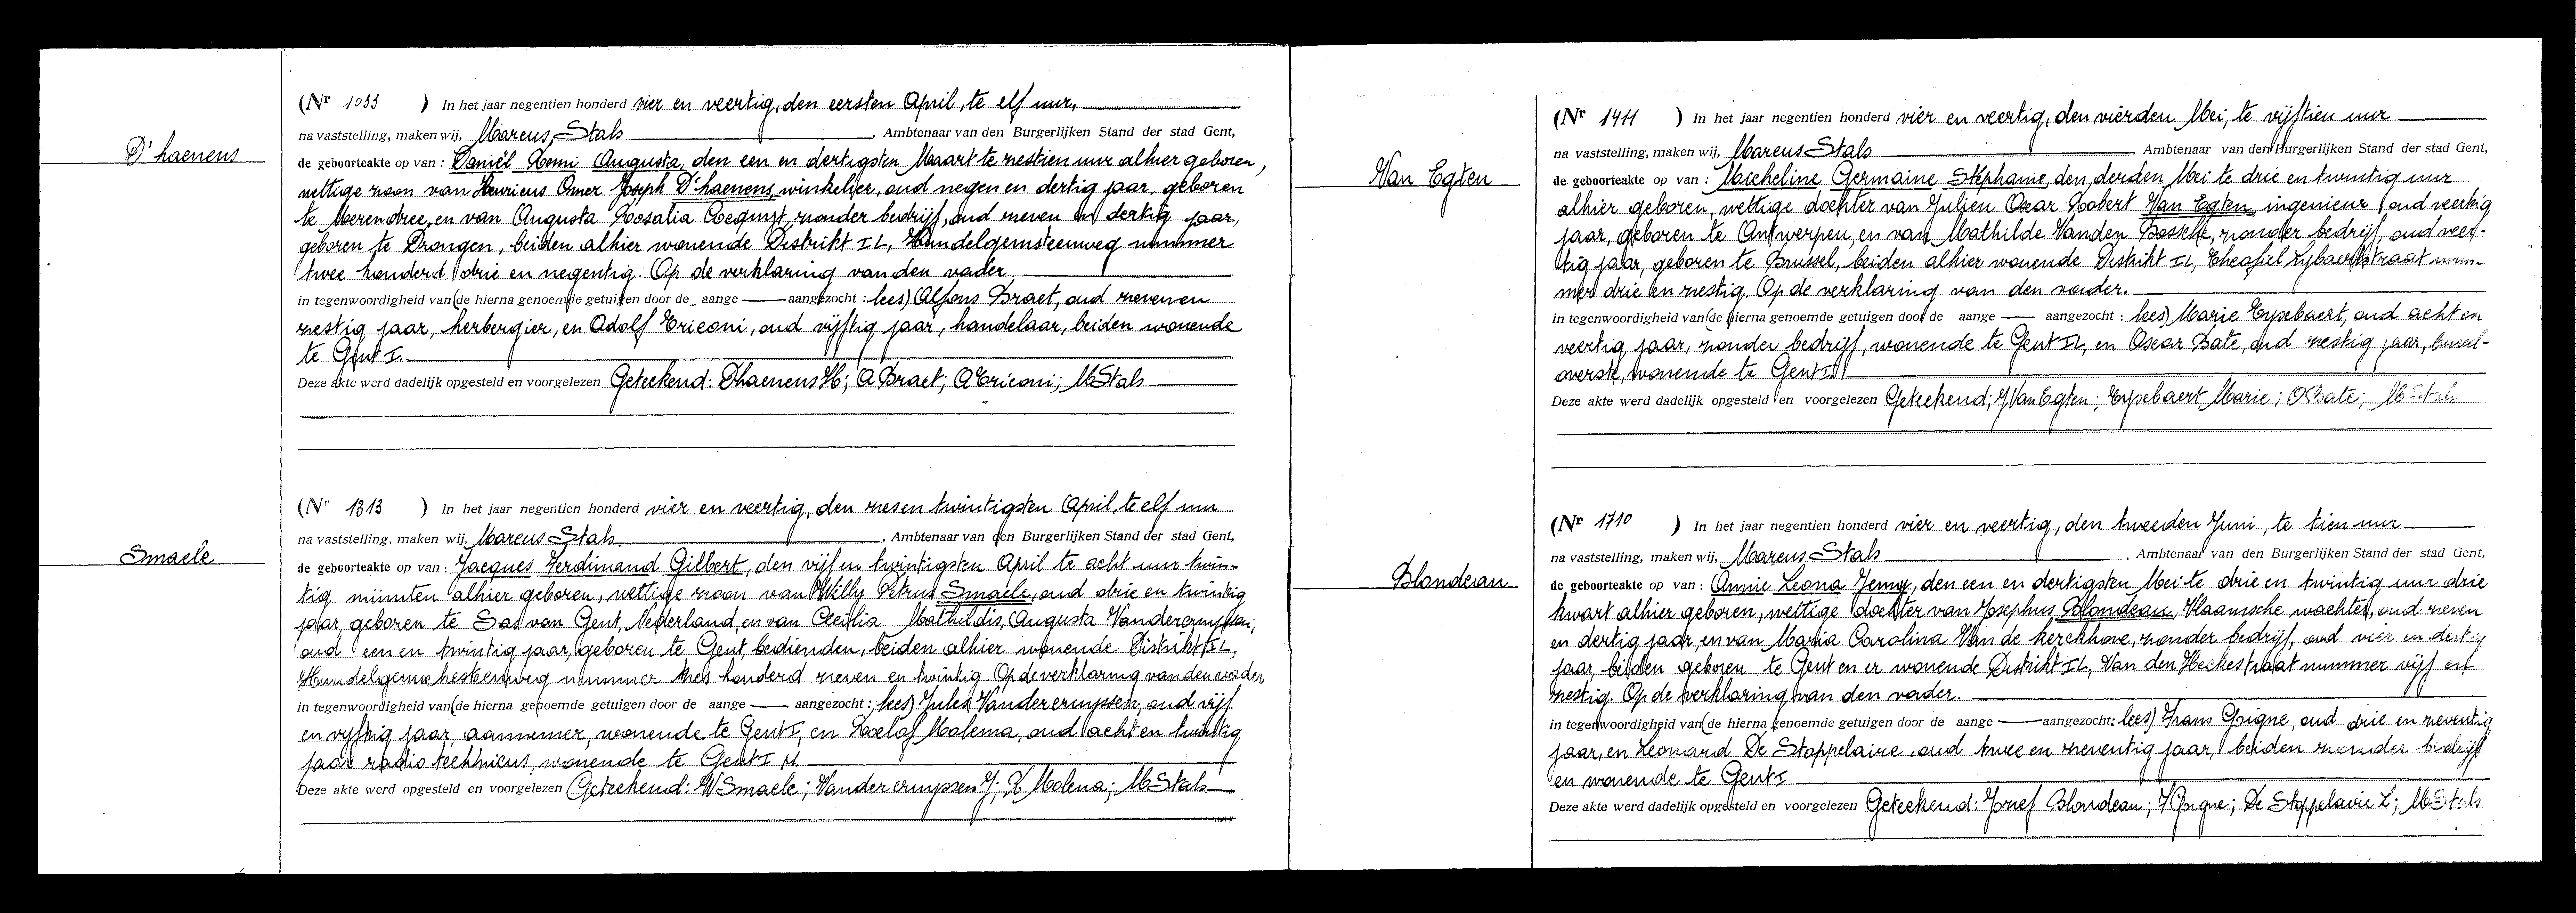 D'haenens
(Nr 1033 ) In het jaar negentien honderd vier en veertig, den eersten April, te elf uur,
na vaststelling, maken wij, Marcus Stals , Ambtenaar van den Burgerlijken Stand der stad Gent,
de geboorteakte op van : Daniël Remi Augusta, den een en dertigsten Maart te zestien uur alhier geboren,
wettige zoon van Henricus Omer Joseph D'haenens, winkelier, oud negen en dertig jaar, geboren
te Merendree, en van Augusta Rosalia Coequyt, zonder bedrijf, oud zeven en dertig jaar,
geboren te Drongen, beiden alhier wonende Distrikt II, Hundelgemsteenweg nummer
twee honderd drie en negentig. Op de verklaring van den vader.
in tegenwoordigheid van (de hierna genoemde getuigen door de aange — aangezocht : lees) Alfons Braet, oud zeven en
zestig jaar, herbergier, en Adolf Criconi, oud vijftig jaar, handelaar, beiden wonende
te Gent I.
Deze akte werd dadelijk opgesteld en voorgelezen Geteekend: Dhaenens H; A Braet; A Criconi; M Stals
Smaele
(Nr 1313 ) In het jaar negentien honderd vier en veertig, den zesen twintigsten April, te elf uur
na vaststelling, maken wij, Marcus Stals , Ambtenaar van den Burgerlijken Stand der stad Gent,
de geboorteakte op van : Jacques Ferdinand Gilbert, den vijf en twintigsten April te acht uur twin-
tig minuten alhier geboren, wettige zoon van Willy Petrus Smaele, oud drie en twintig
jaar, geboren te Sas van Gent, Nederland, en van Cecilia Mathildis Augusta Vandercruyssen,
oud een en twintig jaar, geboren te Gent, bedienden, beiden alhier wonende Distrikt II,
Hundelgemschesteenweg nummer zes honderd zeven en twintig. Op de verklaring van den vader
in tegenwoordigheid van (de hierna genoemde getuigen door de aange — aangezocht : lees) Jules Vandercruyssen, oud vijf
en vijftig jaar, aannemer, wonende te Gent I, en Roelof Molema, oud acht en twintig
jaar radio technicus, wonende te Gent I
Deze akte werd opgesteld en voorgelezen Geteekend: W Smaele; Vandercruyssen J; R Molena; M Stals
Van Egten
(Nr 1411 ) In het jaar negentien honderd vier en veertig, den vierden Mei, te vijftien uur
na vaststelling, maken wij, Marcus Stals , Ambtenaar van den Burgerlijken Stand der stad Gent,
de geboorteakte op van : Micheline Germaine Stéphanie, den derden Mei te drie en twintig uur
alhier geboren, wettige dochter van Julien Oscar Robert Van Egten, ingenieur, oud veertig
jaar, geboren te Antwerpen, en van Mathilde Vanden Bossche, zonder bedrijf, oud veer-
tig jaar, geboren te Brussel, beiden alhier wonende Distrikt II, Theofiel Lybaertstraat num-
mer drie en zestig. Op de verklaring van den vader.
in tegenwoordigheid van (de hierna genoemde getuigen door de aange — aangezocht : lees) Marie Eysebaert, oud acht en
veertig jaar, zonder bedrijf, wonende te Gent II, en Oscar Bate, oud zestig jaar, bureel-
overste, wonende te Gent II
Deze akte werd dadelijk opgesteld en voorgelezen Geteekend; J Van Egten; Eysebaert Marie; O Bate; M Stals
Blondeau
(Nr 1710 ) In het jaar negentien honderd vier en veertig, den tweeden Juni, te tien uur
na vaststelling, maken wij, Marcus Stals , Ambtenaar van den Burgerlijken Stand der stad Gent,
de geboorteakte op van : Annie Leona Jenny, den een en dertigsten Mei te drie en twintig uur drie
kwart alhier geboren, wettige dochter van Josephus Blondeau, Vlaamsche wachter, oud zeven
en dertig jaar, en van Maria Carolina Van de kerckhove, zonder bedrijf, oud vier en dertig
jaar, beiden geboren te Gent en er wonende Distrikt II, Van den Heckestraat nummer vijf en
zestig. Op de verklaring van den vader.
in tegenwoordigheid van (de hierna genoemde getuigen door de aange — aangezocht: lees) Frans Goigne, oud drie en zeventig
jaar, en Leonard De Stoppelaire, oud twee en zeventig jaar, beiden zonder bedrijf
en wonende te Gent I
Deze akte werd dadelijk opgesteld en voorgelezen Geteekend: Jozef Blondeau; F Goigne; De Stoppelavie L; M Stals